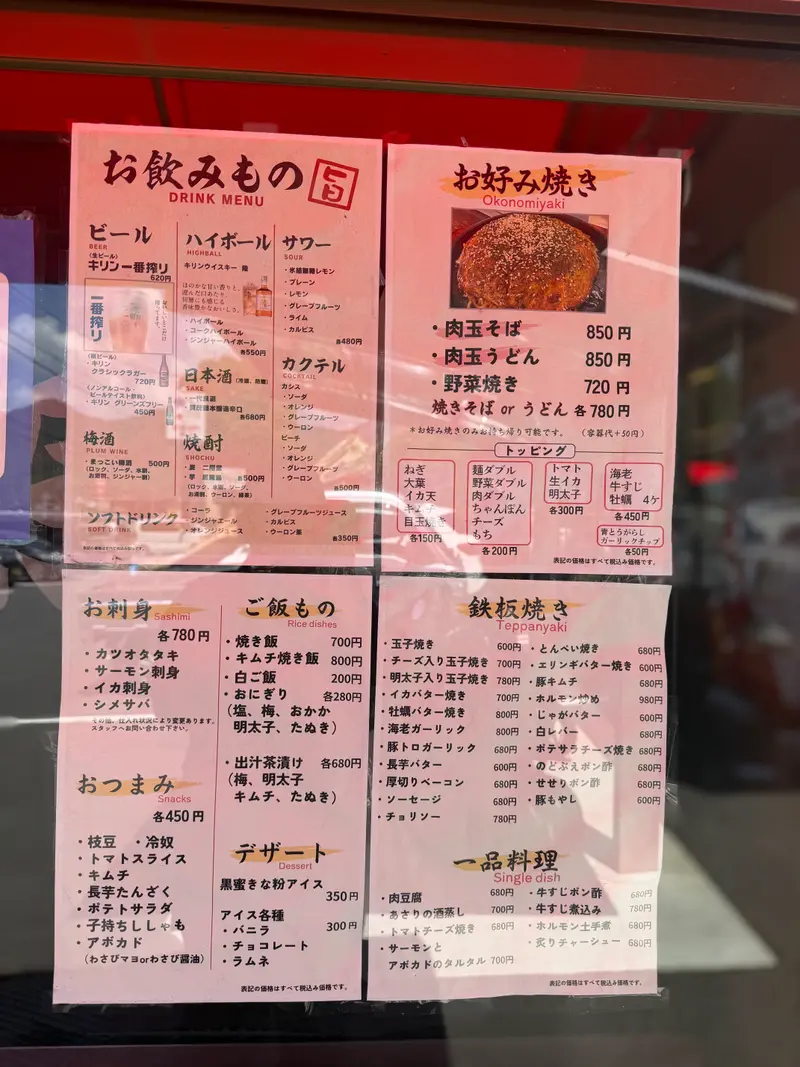 お飲みもの
旨
DRINK MENU
ビール
BEER
(生ビール)
キリン一番搾り
620円
一番搾り
(瓶ビール)
・キリン
クラシックラガー
720円
(ノンアルコール・
ビールテイスト飲料)
・キリン グリーンズフリー
450円
梅酒
PLUM WINE
・まっこい梅酒 500円
(ロック、ソーダ、水割、
お湯割、ジンジャー割)
ハイボール
HIGHBALL
キリンウイスキー 陸
ほのかな甘い香りと、
澄んだ口あたり。
何層にも感じる
香味豊かなおいしさ。
・ハイボール
・コークハイボール
・ジンジャーハイボール
各550円
日本酒
SAKE
・一代弥山
各680円
焼酎
SHOCHU
・麦 二階堂
・芋 黒霧島 各500円
(ロック、水割、ソーダ、
お湯割、ウーロン、緑茶)
サワー
SOUR
・氷結無糖レモン
・プレーン
・レモン
・グレープフルーツ
・ライム
・カルピス
各480円
カクテル
COCKTAIL
カシス
・ソーダ
・オレンジ
・グレープフルーツ
・ウーロン
ピーチ
・ソーダ
・オレンジ
・グレープフルーツ
・ウーロン
各500円
ソフトドリンク
SOFT DRINK
・コーラ
・ジンジャエール
・オレンジジュース
・グレープフルーツジュース
・カルピス
・ウーロン茶
各350円
お好み焼き
Okonomiyaki
・肉玉そば 850円
・肉玉うどん 850円
・野菜焼き 720円
焼きそば or うどん 各780円
*お好み焼きのみお持ち帰り可能です。 (容器代+50円)
トッピング
ねぎ
大葉
イカ天
キムチ
目玉焼き
各150円
麺ダブル
野菜ダブル
肉ダブル
ちゃんぽん
チーズ
もち
各200円
トマト
生イカ
明太子
各300円
海老
牛すじ
牡蠣 4ケ
各450円
青とうがらし
ガーリックチップ
各50円
表記の価格はすべて税込み価格です。
お刺身
Sashimi
各780円
・カツオタタキ
・サーモン刺身
・イカ刺身
・シメサバ
その他、仕入れ状況により変更あります。
スタッフへお問い合わせ下さい。
おつまみ
Snacks
各450円
・枝豆 ・冷奴
・トマトスライス
・キムチ
・長芋たんざく
・ポテトサラダ
・子持ちししゃも
・アボカド
(わさびマヨorわさび醤油)
ご飯もの
Rice dishes
・焼き飯 700円
・キムチ焼き飯 800円
・白ご飯 200円
・おにぎり 各280円
(塩、梅、おかか
明太子、たぬき)
・出汁茶漬け 各680円
(梅、明太子
キムチ、たぬき)
デザート
Dessert
黒蜜きな粉アイス
350円
アイス各種
・バニラ 300円
・チョコレート
・ラムネ
表記の価格はすべて税込み価格です。
鉄板焼き
Teppanyaki
・玉子焼き 600円
・チーズ入り玉子焼き 700円
・明太子入り玉子焼き 780円
・イカバター焼き 700円
・牡蠣バター焼き 800円
・海老ガーリック 800円
・豚トロガーリック 680円
・長芋バター 600円
・厚切りベーコン 680円
・ソーセージ 680円
・チョリソー 780円
・とんぺい焼き 680円
・エリンギバター焼き 600円
・豚キムチ 680円
・ホルモン炒め 980円
・じゃがバター 600円
・白レバー 680円
・ポテサラチーズ焼き 680円
・のどぶえポン酢 680円
・せせりポン酢 680円
・豚もやし 600円
一品料理
Single dish
・肉豆腐 680円
・あさりの酒蒸し 700円
・トマトチーズ焼き 680円
・サーモンと
アボカドのタルタル 700円
・牛すじポン酢 680円
・牛すじ煮込み 780円
・ホルモン土手煮 680円
・炙りチャーシュー 680円
表記の価格はすべて税込み価格です。